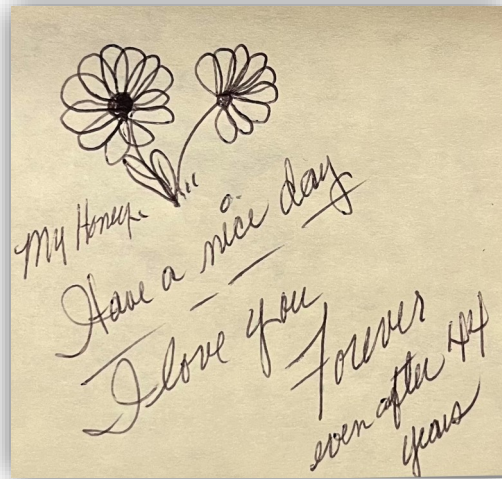 My Honey..
Have a nice day
I love you
Forever
even after 44
years